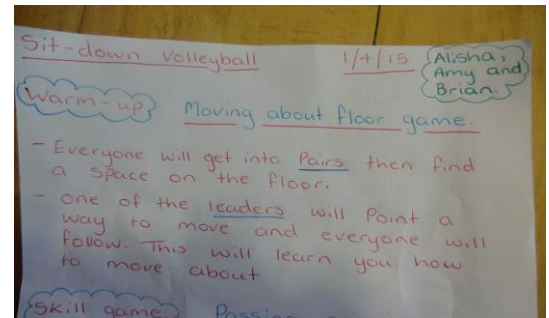 Sit-down volleyball 1/4/15 Alisha, Amy and Brian.
Warm-up Moving about floor game.
- Everyone will get into Pairs then find
a space on the floor.
- one of the leaders will Point a
way to move and everyone will
follow. This will learn you how
to move about.
Skill game